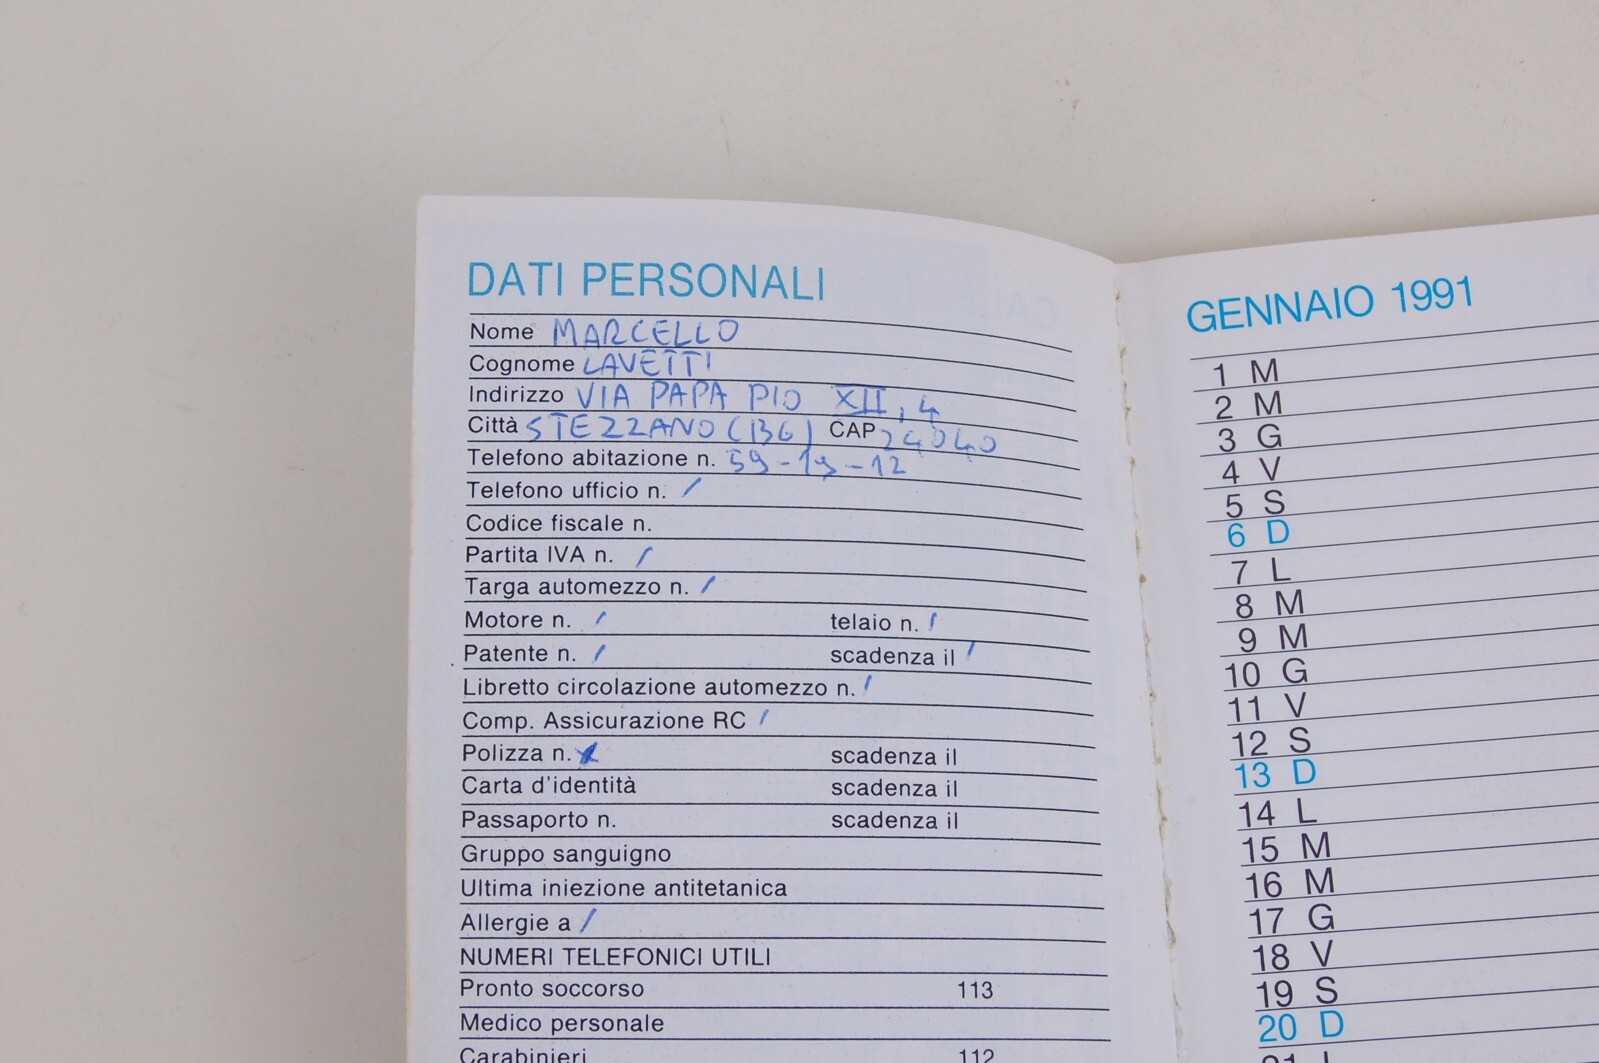 DATI PERSONALI
Nome MARCELLO
Cognome LAVETTI
Indirizzo VIA PAPA PIO XII, 4
Città STEZZANO (BG) CAP 24040
Telefono abitazione n. 59-19-12
Telefono ufficio n. /
Codice fiscale n.
Partita IVA n. /
Targa automezzo n. /
Motore n. / telaio n. /
Patente n. / scadenza il /
Libretto circolazione automezzo n. /
Comp. Assicurazione RC /
Polizza n. scadenza il
Carta d'identità scadenza il
Passaporto n. scadenza il
Gruppo sanguigno
Ultima iniezione antitetanica
Allergie a /
NUMERI TELEFONICI UTILI
Pronto soccorso 113
Medico personale
Carabinieri 112
GENNAIO 1991
1 M
2 M
3 G
4 V
5 S
6 D
7 L
8 M
9 M
10 G
11 V
12 S
13 D
14 L
15 M
16 M
17 G
18 V
19 S
20 D
21 L